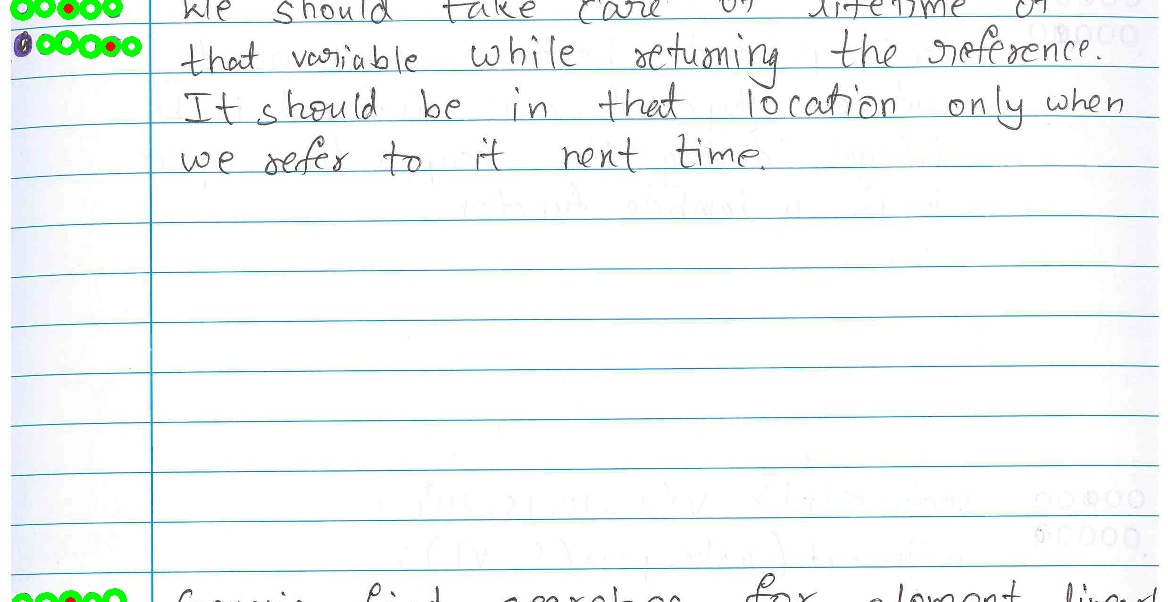 We should take care of lifetime of
that variable while returning the reference.
It should be in that location only when
we refer to it next time.
find searches for element